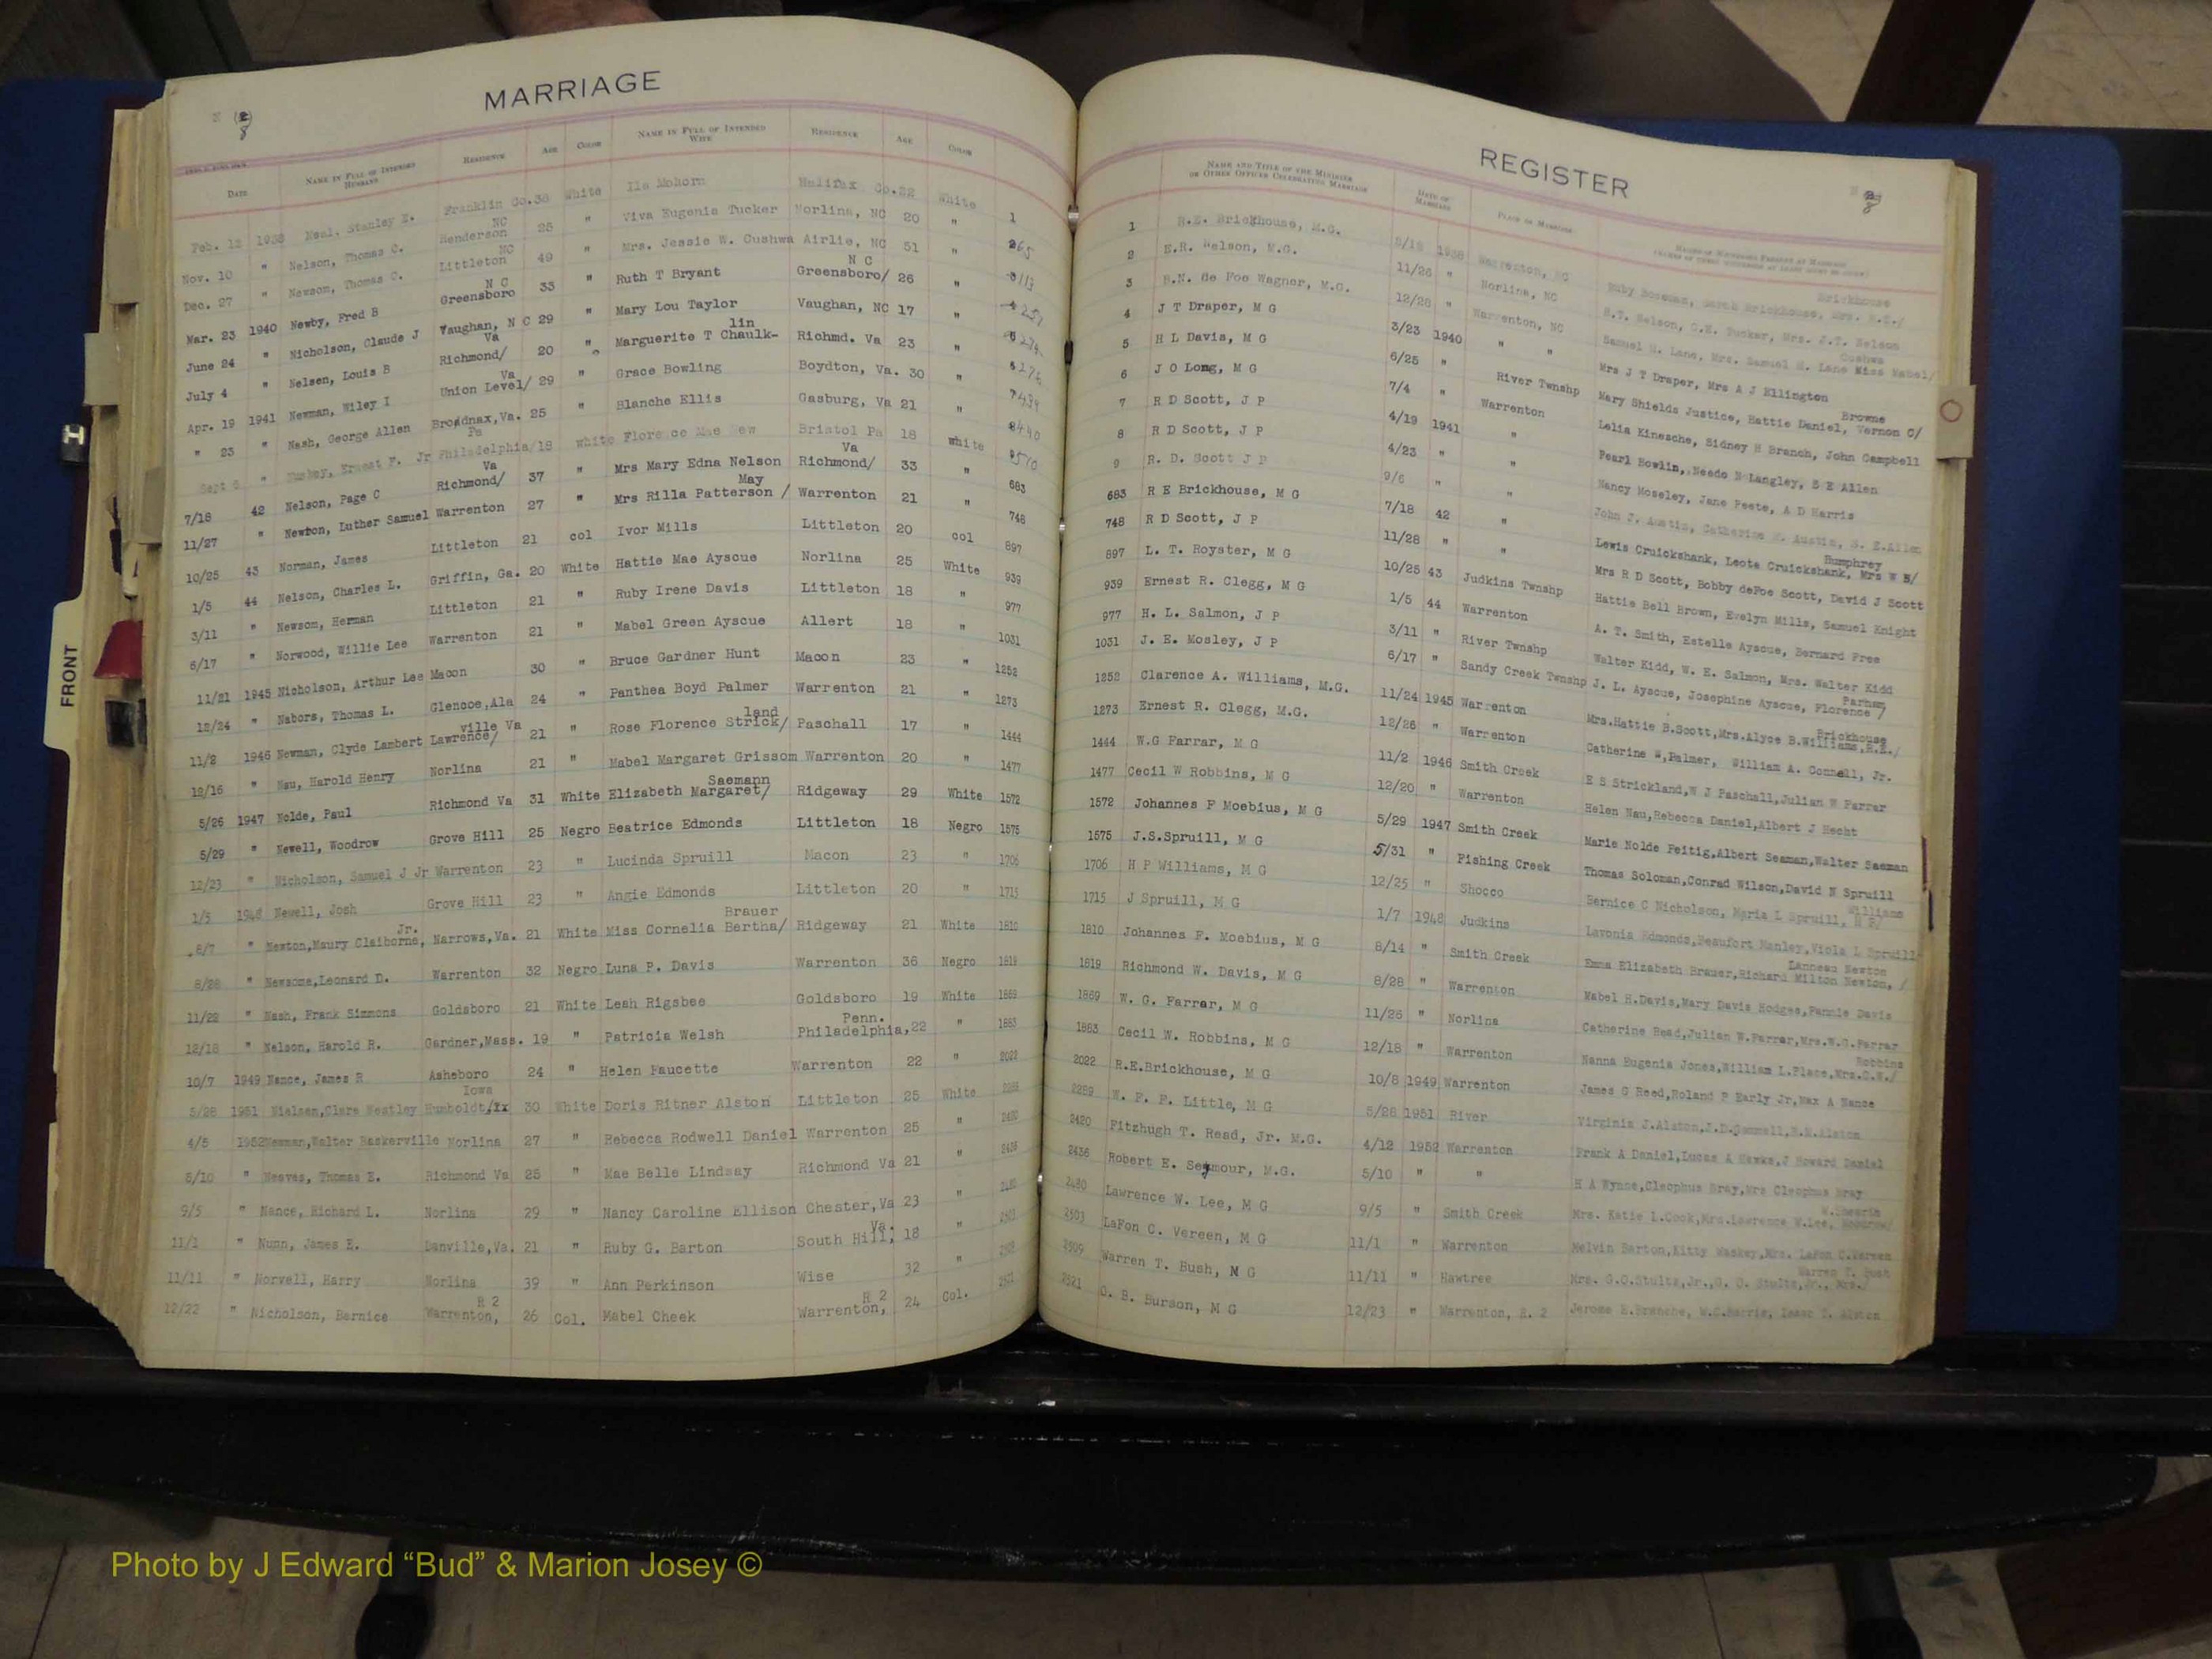 MARRIAGE
DATE NAME IN FULL OF INTENDED HUSBAND RESIDENCE AGE COLOR NAME IN FULL OF INTENDED WIFE RESIDENCE AGE COLOR
Feb. 12 1938 Neal, Stanley E. Franklin Co. 38 White Ila Mohorn Halifax Co. 22 White 1
Nov. 10 " Nelson, Thomas C. Henderson NC 25 " Viva Eugenia Tucker Norlina, NC 20 "
Dec. 27 " Newsom, Thomas C. Littleton NC 49 " Mrs. Jessie W. Cushwa Airlie, NC 51 "
Mar. 23 1940 Newby, Fred B Greensboro N C 33 " Ruth T Bryant Greensboro/ N C 26 "
June 24 " Nicholson, Claude J Vaughan, N C 29 " Mary Lou Taylor Vaughan, NC 17 "
July 4 " Nelsen, Louis B Richmond/ Va 20 " Marguerite T Chaulk-lin Richmd. Va 23 "
Apr. 19 1941 Newman, Wiley I Union Level/ Va 29 " Grace Bowling Boydton, Va. 30 "
" 23 " Nash, George Allen Brodnax, Va. 25 " Blanche Ellis Gasburg, Va 21 "
Sept 6 " Ernest F. Jr Philadelphia/ Pa 18 white Florence Mae New Bristol Pa 18 white
7/18 42 Nelson, Page C Richmond/ Va 37 " Mrs Mary Edna Nelson Richmond/ Va 33 " 683
11/27 " Newton, Luther Samuel Warrenton 27 " Mrs Rilla Patterson / May Warrenton 21 " 748
10/25 43 Norman, James Littleton 21 col Ivor Mills Littleton 20 col 897
1/5 44 Nelson, Charles L. Griffin, Ga. 20 White Hattie Mae Ayscue Norlina 25 White 939
3/11 " Newsom, Herman Littleton 21 " Ruby Irene Davis Littleton 18 " 977
6/17 " Norwood, Willie Lee Warrenton 21 " Mabel Green Ayscue Allert 18 " 1031
11/21 1945 Nicholson, Arthur Lee Macon 30 " Bruce Gardner Hunt Macon 23 " 1252
12/24 " Nabors, Thomas L. Glencoe, Ala 24 " Panthea Boyd Palmer Warrenton 21 " 1273
11/2 1946 Newman, Clyde Lambert Lawrence/ ville Va 21 " Rose Florence Strick/ land Paschall 17 " 1444
12/16 " Nau, Harold Henry Norlina 21 " Mabel Margaret Grissom Warrenton 20 " 1477
5/26 1947 Nolde, Paul Richmond Va 31 White Elizabeth Margaret/ Saemann Ridgeway 29 White 1572
5/29 " Newell, Woodrow Grove Hill 25 Negro Beatrice Edmonds Littleton 18 Negro 1575
12/23 " Nicholson, Samuel J Jr Warrenton 23 " Lucinda Spruill Macon 23 " 1706
1/5 1948 Newell, Josh Grove Hill 23 " Angie Edmonds Littleton 20 " 1715
8/7 " Newton, Maury Claiborne, Jr. Narrows, Va. 21 White Miss Cornelia Bertha/ Brauer Ridgeway 21 White 1810
8/28 " Newsome, Leonard D. Warrenton 32 Negro Luna P. Davis Warrenton 36 Negro 1819
11/22 " Nash, Frank Simmons Goldsboro 21 White Leah Rigsbee Goldsboro 19 White 1869
12/18 " Nelson, Harold R. Gardner, Mass. 19 " Patricia Welsh Philadelphia, Penn. 22 " 1883
10/7 1949 Nance, James R Asheboro 24 " Helen Faucette Warrenton 22 " 2022
5/28 1951 Nielsen, Clare Westley Humboldt/ Iowa 30 White Doris Ritner Alston Littleton 25 White 2289
4/5 1952 Newman, Walter Baskerville Norlina 27 " Rebecca Rodwell Daniel Warrenton 25 " 2420
5/10 " Neaves, Thomas E. Richmond Va 25 " Mae Belle Lindsay Richmond Va 21 " 2436
9/5 " Nance, Richard L. Norlina 29 " Nancy Caroline Ellison Chester, Va 23 " 2480
11/1 " Nunn, James E. Danville, Va. 21 " Ruby G. Barton South Hill, Va. 18 " 2503
11/11 " Norvell, Harry Norlina 39 " Ann Perkinson Wise 32 " 2509
12/22 " Nicholson, Bernice Warrenton, R 2 26 Col. Mabel Cheek Warrenton, R 2 24 Col. 2521
REGISTER
NAME AND TITLE OF THE MINISTER OR OTHER OFFICER CELEBRATING MARRIAGE DATE OF MARRIAGE PLACE OF MARRIAGE
1 R.E. Brickhouse, M.G. 1938 Warrenton, NC
2 E.R. Nelson, M.G. 11/26 " Norlina, NC E.T. Nelson, G.E. Tucker, Mrs. J.T. Nelson
3 B.N. de Foe Wagner, M.G. 12/28 " Warrenton, NC Samuel H. Lane, Mrs. Samuel H. Lane Miss Mabel/ Cushwa
4 J T Draper, M G 3/23 1940 " " Mrs J T Draper, Mrs A J Ellington
5 H L Davis, M G 6/25 " River Twnshp Mary Shields Justice, Hattie Daniel, Vernon C/ Browne
6 J O Long, M G 7/4 " Warrenton Lelia Kinesche, Sidney H Branch, John Campbell
7 R D Scott, J P 4/19 1941 " Pearl Bowlin, Neede N Langley, S E Allen
8 R D Scott, J P 4/23 " " Nancy Moseley, Jane Peete, A D Harris
9 R. D. Scott J P 9/6 " " John J. Austin, Catherine M. Austin, S. E. Allen
683 R E Brickhouse, M G 7/18 42 " Lewis Cruickshank, Leota Cruickshank, Mrs W B/ Humphrey
748 R D Scott, J P 11/28 " " Mrs R D Scott, Bobby deFoe Scott, David J Scott
897 L. T. Royster, M G 10/25 43 Judkins Twnshp Hattie Bell Brown, Evelyn Mills, Samuel Knight
939 Ernest R. Clegg, M G 1/5 44 Warrenton A. T. Smith, Estelle Ayscue, Bernard Free
977 H. L. Salmon, J P 3/11 " River Twnshp Walter Kidd, W. E. Salmon, Mrs. Walter Kidd
1031 J. E. Mosley, J P 6/17 " Sandy Creek Twnshp J. L. Ayscue, Josephine Ayscue, Florence / Parham
1252 Clarence A. Williams, M.G. 11/24 1945 Warrenton Mrs. Hattie B. Scott, Mrs. Alyce B. Williams, R.E./ Brickhouse
1273 Ernest R. Clegg, M.G. 12/26 " Warrenton Catherine W. Palmer, William A. Connell, Jr.
1444 W.G Farrar, M G 11/2 1946 Smith Creek E S Strickland, W J Paschall, Julian W Farrar
1477 Cecil W Robbins, M G 12/20 " Warrenton Helen Nau, Rebecca Daniel, Albert J Hecht
1572 Johannes F Moebius, M G 5/29 1947 Smith Creek Marie Nolde Feitig, Albert Seaman, Walter Saeman
1575 J.S. Spruill, M G 5/31 " Fishing Creek Thomas Soloman, Conrad Wilson, David N Spruill
1706 H P Williams, M G 12/25 " Shocco Bernice C Nicholson, Maria L Spruill, H P/ Williams
1715 J Spruill, M G 1/7 1948 Judkins Lavonia Edmonds, Beaufort Manley, Viola L Spruill
1810 Johannes F. Moebius, M G 8/14 " Smith Creek Emma Elizabeth Brauer, Richard Milton Newton, / Lanneau Newton
1819 Richmond W. Davis, M G 8/28 " Warrenton Mabel H. Davis, Mary Davis Hodges, Fannie Davis
1869 W. G. Farrar, M G 11/25 " Norlina Catherine Read, Julian W. Farrar, Mrs. W.G. Farrar
1883 Cecil W. Robbins, M G 12/18 " Warrenton Nanna Eugenia Jones, William L. Place, Mrs. C.W./ Robbins
2022 R.E. Brickhouse, M G 10/8 1949 Warrenton James G Reed, Roland P Early Jr, Max A Nance
2289 W. F. P. Little, M G 5/28 1951 River Virginia J. Alston
2420 Fitzhugh T. Read, Jr. M.G. 4/12 1952 Warrenton Frank A Daniel, Lucas A Hawks, J Howard Daniel
2436 Robert E. Seymour, M.G. 5/10 " " H A Wynne, Cleophus Bray, Mrs Cleophus Bray
2480 Lawrence W. Lee, M G 9/5 " Smith Creek Mrs. Katie L. Cook, Mrs. Lawrence W. Lee,
2503 LaFon C. Vereen, M G 11/1 " Warrenton Melvin Barton, Kitty Mackey, Mrs. LaFon C. Vereen
2509 Warren T. Bush, M G 11/11 " Hawtree Mrs. G.O. Stultz, Jr., G. O. Stultz, Jr., Mrs./ Warren T. Bush
2521 O. B. Burson, M G 12/23 " Warrenton, R. 2 Jerome E. Branche, W.C. Harris, Isaac T. Alston
FRONT
Photo by J Edward “Bud” & Marion Josey ©